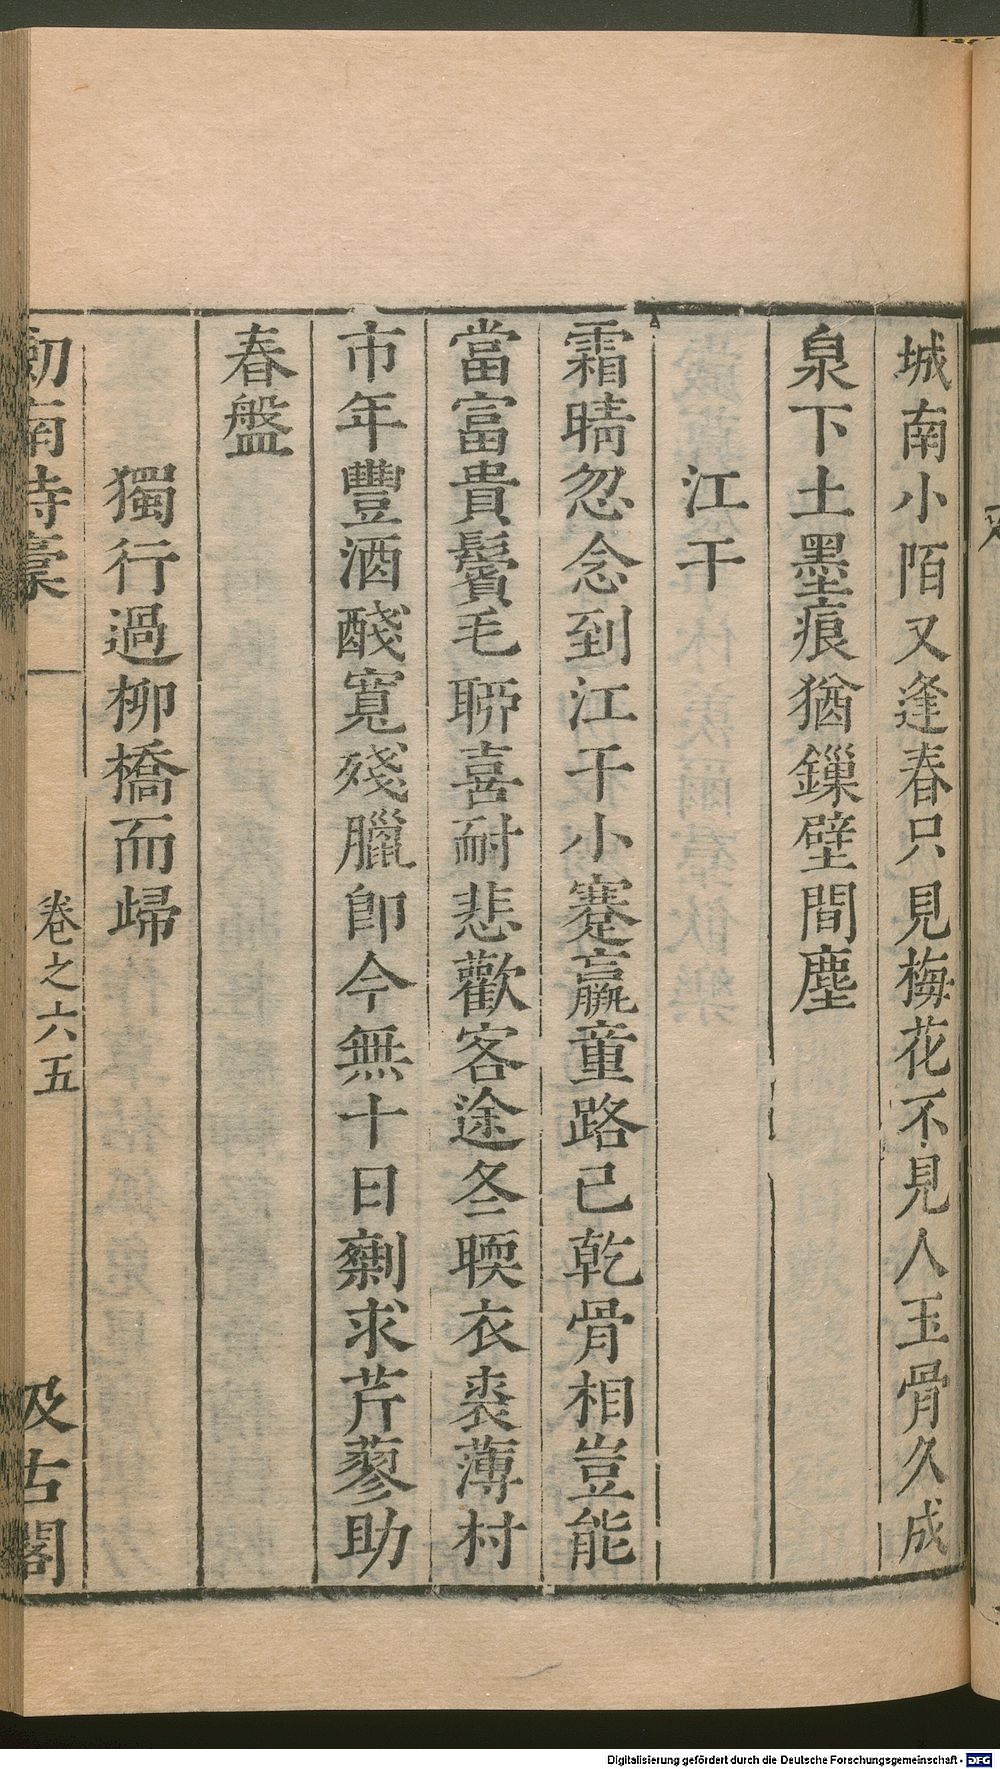 城南小陌又逢春只見梅花不見人玉骨久成
泉下土墨痕猶鏁壁間塵
江干
霜晴忽念到江干小蹇羸童路已乾骨相豈能
當富貴鬢毛聊喜耐悲歡客途冬暖衣裘薄村
市年豐酒醆寬殘臘卽今無十日劑求芹蓼助
春盤
獨行過柳橋而歸
劎南詩稾
卷之六五
汲古閣
Digitalisierung gefördert durch die Deutsche Forschungsgemeinschaft - DFG